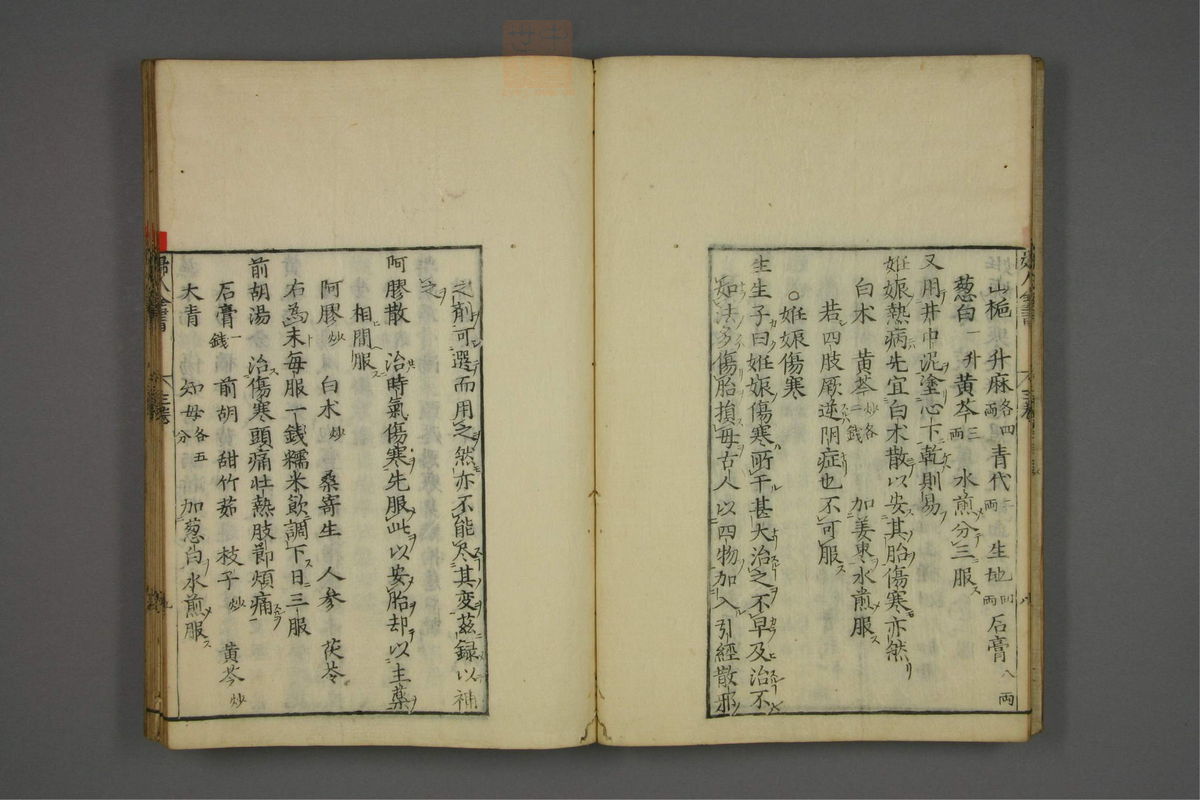 山梔 升麻各四両 青代二両 生地四両 石膏八両
葱白一升 黄芩三両 水煎分三服
又用井中泥塗心下乾則易
妊娠熱病先宜白术散以安其胎傷寒亦然
白术 黄芩炒各二銭 加姜棗水煎服
若四肢厥逆阴症也不可服
○妊娠傷寒
生生子曰妊娠傷寒所干甚大治之不早及治不
知法多傷胎損母古人以四物加入引經散邪
之剤可選而用之然亦不能尽其変茲録以補
之
阿膠散 治時氣傷寒先服此以安胎却以主薬
相間服
阿膠炒 白术炒 桑寄生 人参 茯苓
右為末毎服一銭糯米飲調下日三服
前胡湯 治傷寒頭痛壮熱肢節煩痛
石膏一銭 前胡 甜竹茹 枝子炒 黄芩炒
大青 知母各五分 加葱白水煎服